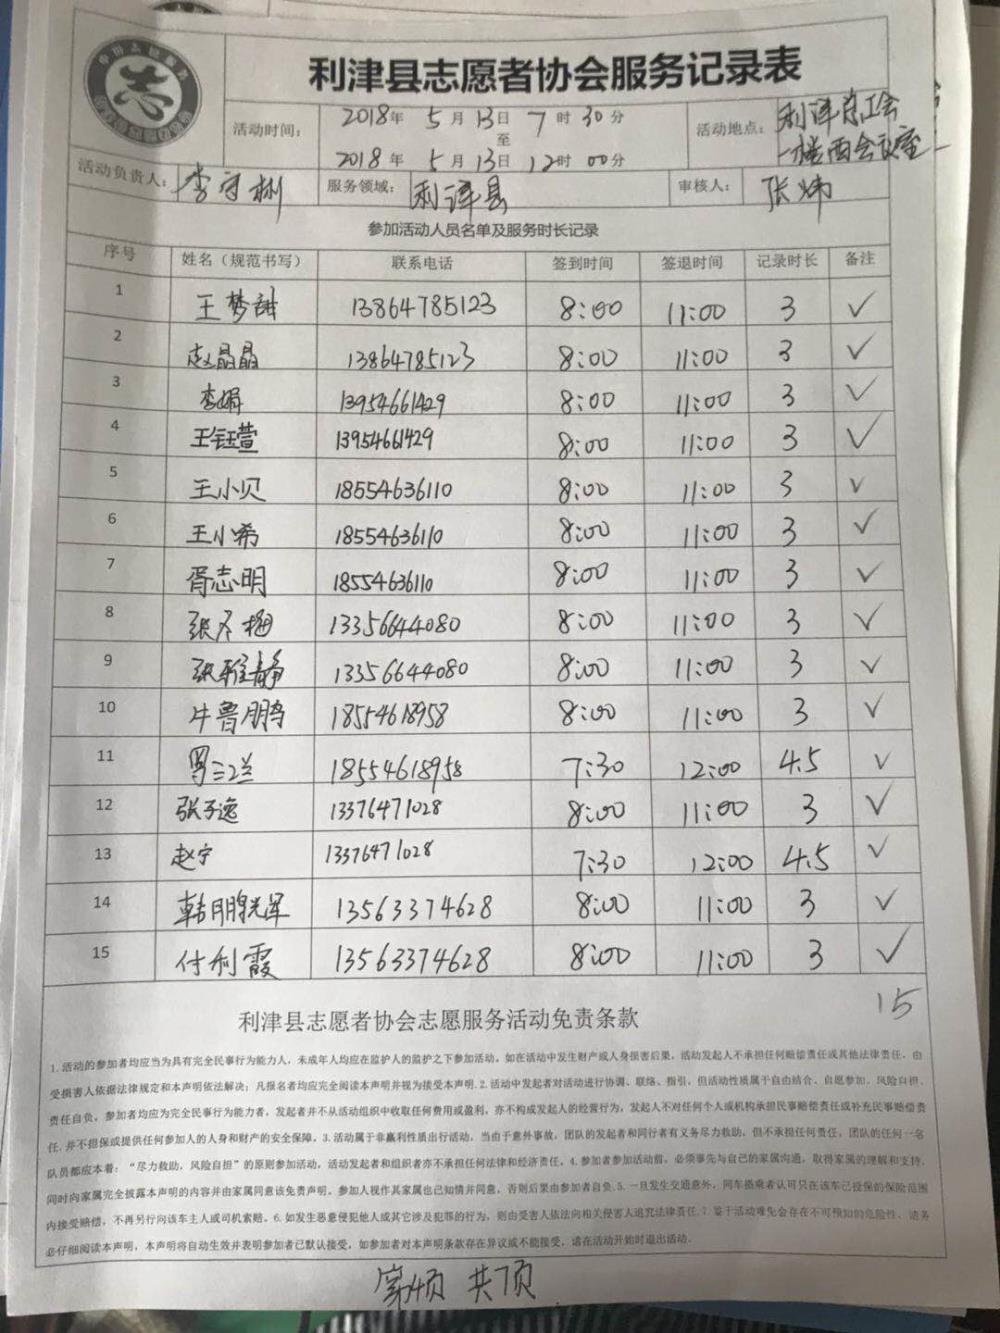 志
利津县志愿者协会服务记录表
活动时间： 2018年 5月13日 7时30分
至
2018年 5月13日 12时00分
活动地点： 利津总工会
一楼西会议室
活动负责人： 李守彬 服务领域： 利津县 审核人： 张炜
参加活动人员名单及服务时长记录
序号 姓名（规范书写） 联系电话 签到时间 签退时间 记录时长 备注
1 王梦甜 13864785123 8:00 11:00 3 ✓
2 赵晶晶 13864785123 8:00 11:00 3 ✓
3 李娟 13954661429 8:00 11:00 3 ✓
4 王钰萱 13954661429 8:00 11:00 3 ✓
5 王小贝 18554636110 8:00 11:00 3 ✓
6 王小希 18554636110 8:00 11:00 3 ✓
7 胥志明 18554636110 8:00 11:00 3 ✓
8 张冬梅 13356644080 8:00 11:00 3 ✓
9 张雅静 13356644080 8:00 11:00 3 ✓
10 牛鲁鹏 18554618958 8:00 11:00 3 ✓
11 罗兰兰 18554618958 7:30 12:00 4.5 ✓
12 张子逸 13376471028 8:00 11:00 3 ✓
13 赵宁 13376471028 7:30 12:00 4.5 ✓
14 韩鹏 13563374628 8:00 11:00 3 ✓
15 付利霞 13563374628 8:00 11:00 3 ✓
15
利津县志愿者协会志愿服务活动免责条款
1.活动的参加者均应当为具有完全民事行为能力人，未成年人均应在监护人的监护之下参加活动，如在活动中发生财产或人身损害后果，活动发起人不承担任何赔偿责任或其他法律责任，由
受损害人依据法律规定和本声明依法解决；凡报名者均应完全阅读本声明并视为接受本声明.2.活动中发起者对活动进行协调、联络、指引，但活动性质属于自由结合、自愿参加、风险自担、
责任自负，参加者均应为完全民事行为能力者，发起者并不从活动组织中收取任何费用或盈利，亦不构成发起人的经营行为，发起人不对任何个人或机构承担民事赔偿责任或补充民事赔偿责
任，并不担保或提供任何参加人的人身和财产的安全保障。3.活动属于非赢利性质出行活动，当由于意外事故，团队的发起者和同行者有义务尽力救助，但不承担任何责任，团队的任何一名
队员都应本着：“尽力救助，风险自担”的原则参加活动，活动发起者和组织者亦不承担任何法律和经济责任。4.参加者参加活动前，必须事先与自己的家属沟通，取得家属的理解和支持，
同时向家属完全披露本声明的内容并由家属同意该免责声明，参加人视作其家属也已知情并同意，否则后果由参加者自负.5.一旦发生交通意外，同车搭乘者认可只在该车已投保的保险范围
内接受赔偿，不再另行向该车主人或司机索赔。6.如发生恶意侵犯他人或其它涉及犯罪的行为，则由受害人依法向相关侵害人追究法律责任.7.鉴于活动难免会存在不可预知的危险性，请务
必仔细阅读本声明，本声明将自动生效并表明参加者已默认接受，如参加者对本声明条款存在异议或不能接受，请在活动开始时退出活动.
第4页 共7页